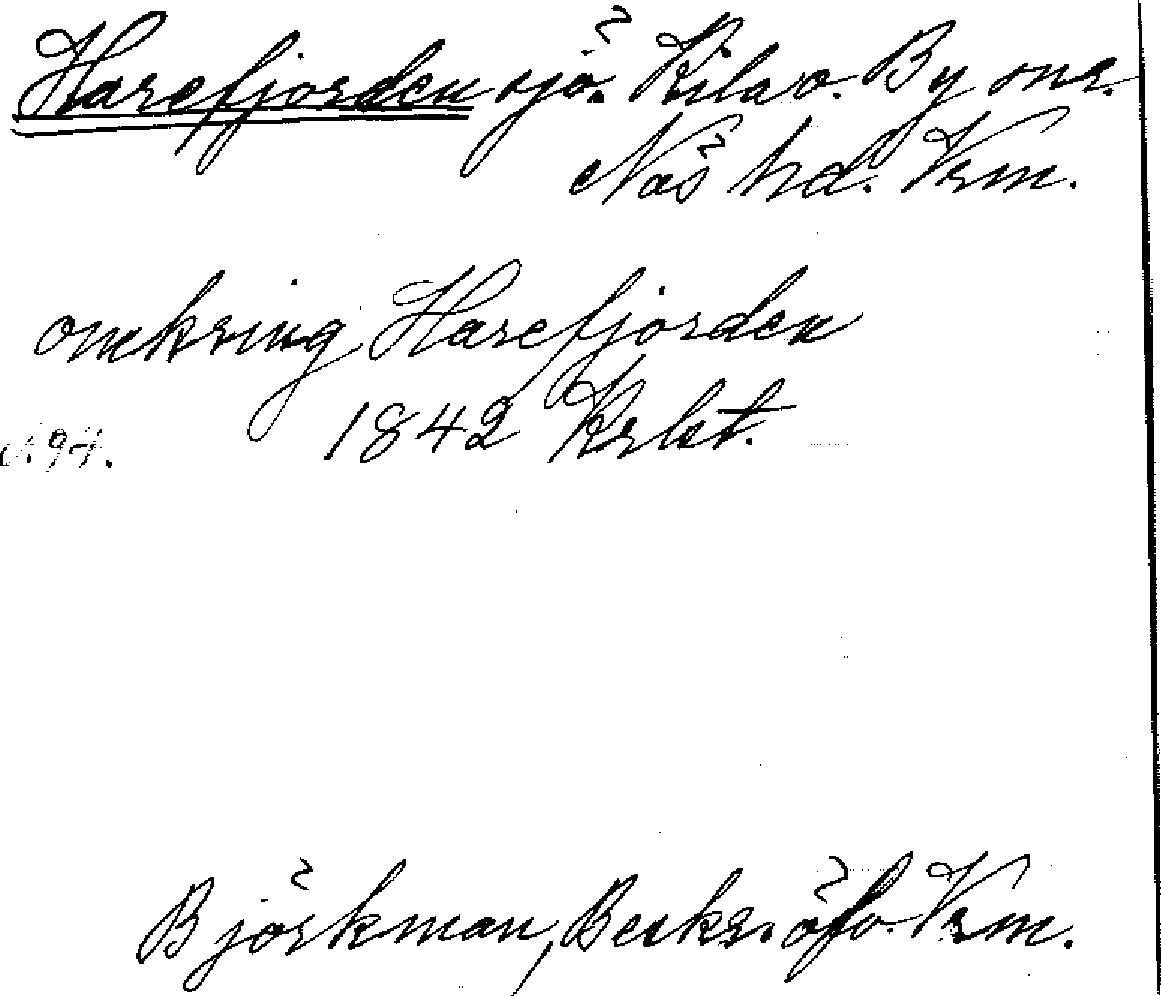 Harefjorden sjö. Kila o. By snr.
Näs hd. Vrm.
omkring Harefjorden
1842 Krlst.
94.
Björkman, Beskr. öfv. Vrm.